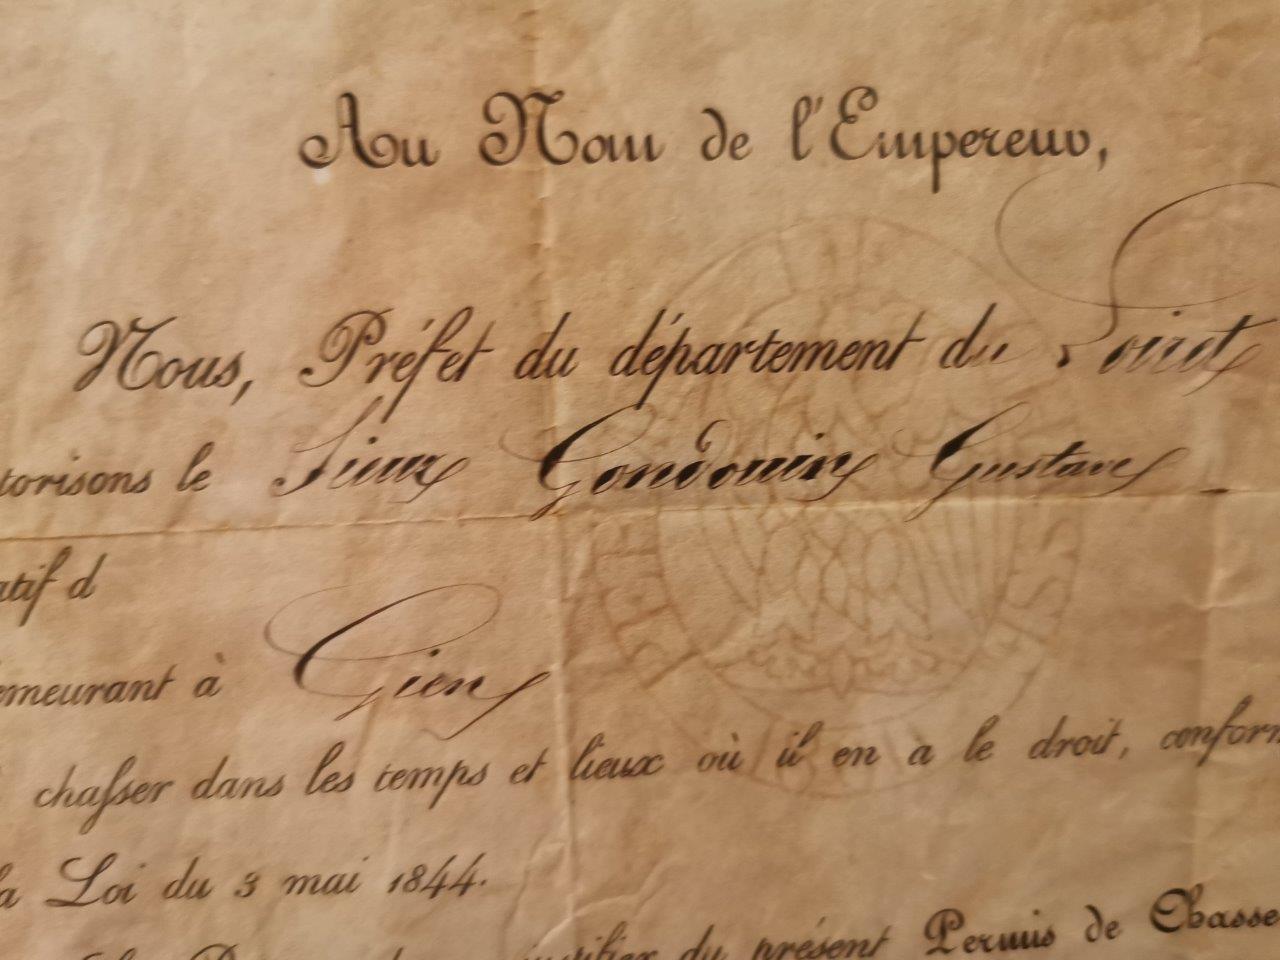 Au Nom de l'Empereur,
Nous, Préfet du département du Loiret
torisons le Sieur Gondouin Gustave
atif d
emeurant à Gien
chasser dans les temps et lieux où il en a le droit, conform
la Loi du 3 mai 1844.
justifier du présent Permis de Chasse